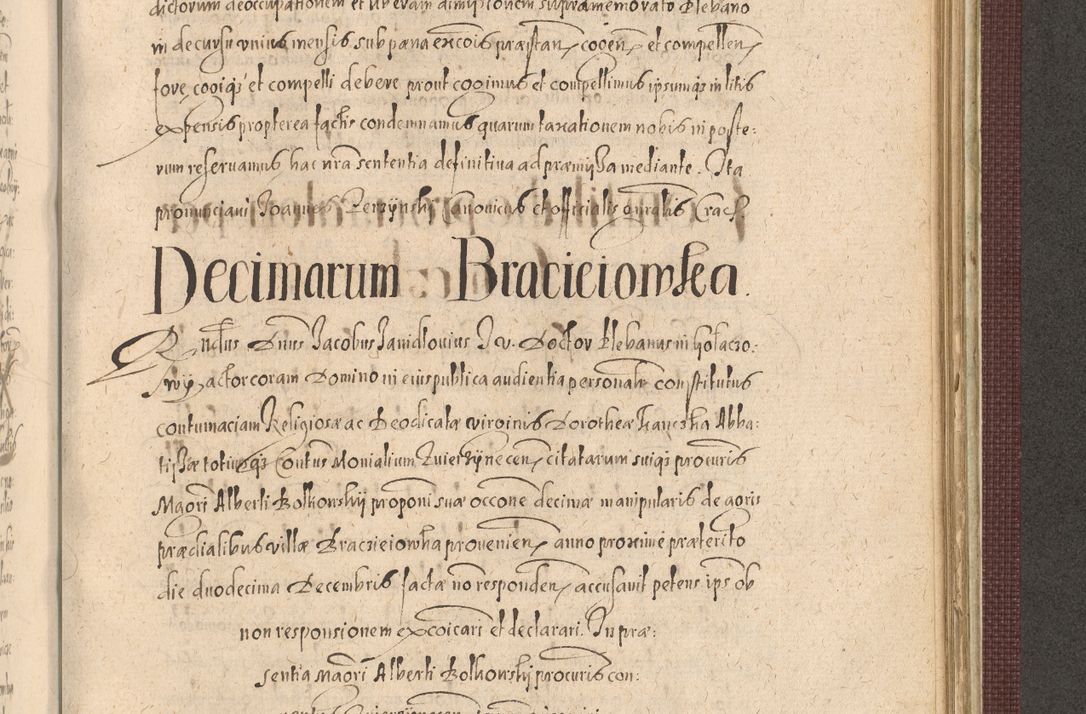 dictorum deoccupationem et liberam dimissionem supramemorato Plebano
in decursu unius mensis sub pæna excois præstan, cogen, et compellen,
fore, cogiq; et compelli debere prout cogimus et compellimus ipsumq; in litis
expensis propterea factis condemnamus quarum taxationem nobis in poste:
rum reservamus hac nra sententia definitiva ad præmissa mediante. Ita
pronunciavi Joannes canonicus et officialis gnralis Crac.
Decimarum Bracieiowska.
Rndus Dnus Jacobus Janidlovius J. V. Doctor Plebanus in
actor coram Domino in eius publica audientia personalr constitutus
contumaciam Religiosæ ac Deodicatæ virginis Dorotheæ Kanczka Abba:
tissæ totiusq; Contus Monialium Zvierzynecen, citatarum suiq; procuris
Magri Alberti Bolkonskij proponi suæ occone decimæ manipularis de agris
prædialibus villæ Braczieiowka provenien, anno proxime præterito
die duodecima Decembris factæ no responden, accusavit petens ips ob
non responsionem excoicari et declarari. In præ:
sentia Magri Alberti Bolkonskij procuris con: